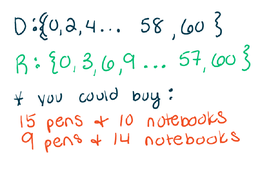 D:{0,2,4... 58,60}
R:{0,3,6,9 ... 57,60}
* you could buy:
15 pens & 10 notebooks
9 pens & 14 notebooks